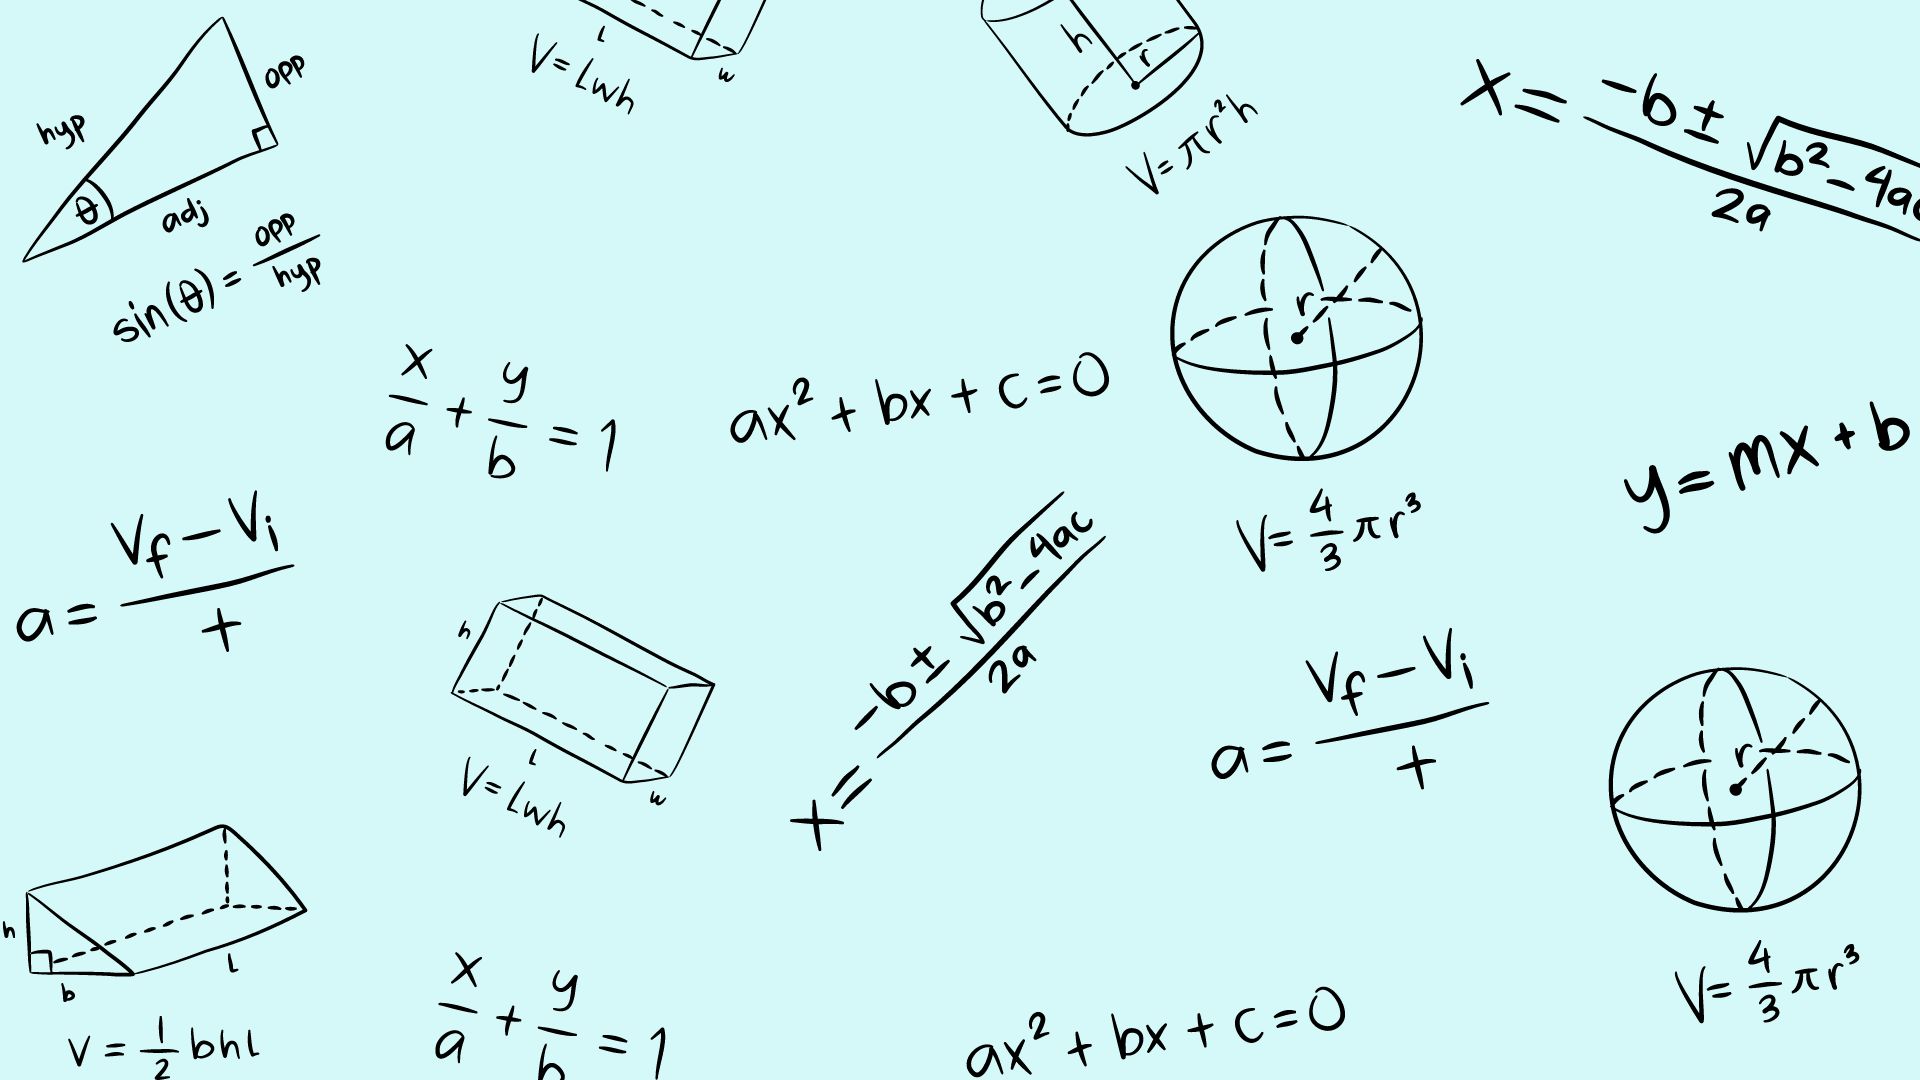 hyp
opp
θ
adj
sin(θ) = opp/hyp
L
w
V = Lwh
h
r
V = πr²h
x = (-b ± √(b² - 4ac))/2a
x/a + y/b = 1
ax² + bx + c = 0
r
V = 4/3 πr³
y = mx + b
a = (Vf - Vi)/t
h
L
w
V = Lwh
x = (-b ± √(b² - 4ac))/2a
a = (Vf - Vi)/t
r
V = 4/3 πr³
h
b
L
V = 1/2 bhl
x/a + y/b = 1
ax² + bx + c = 0